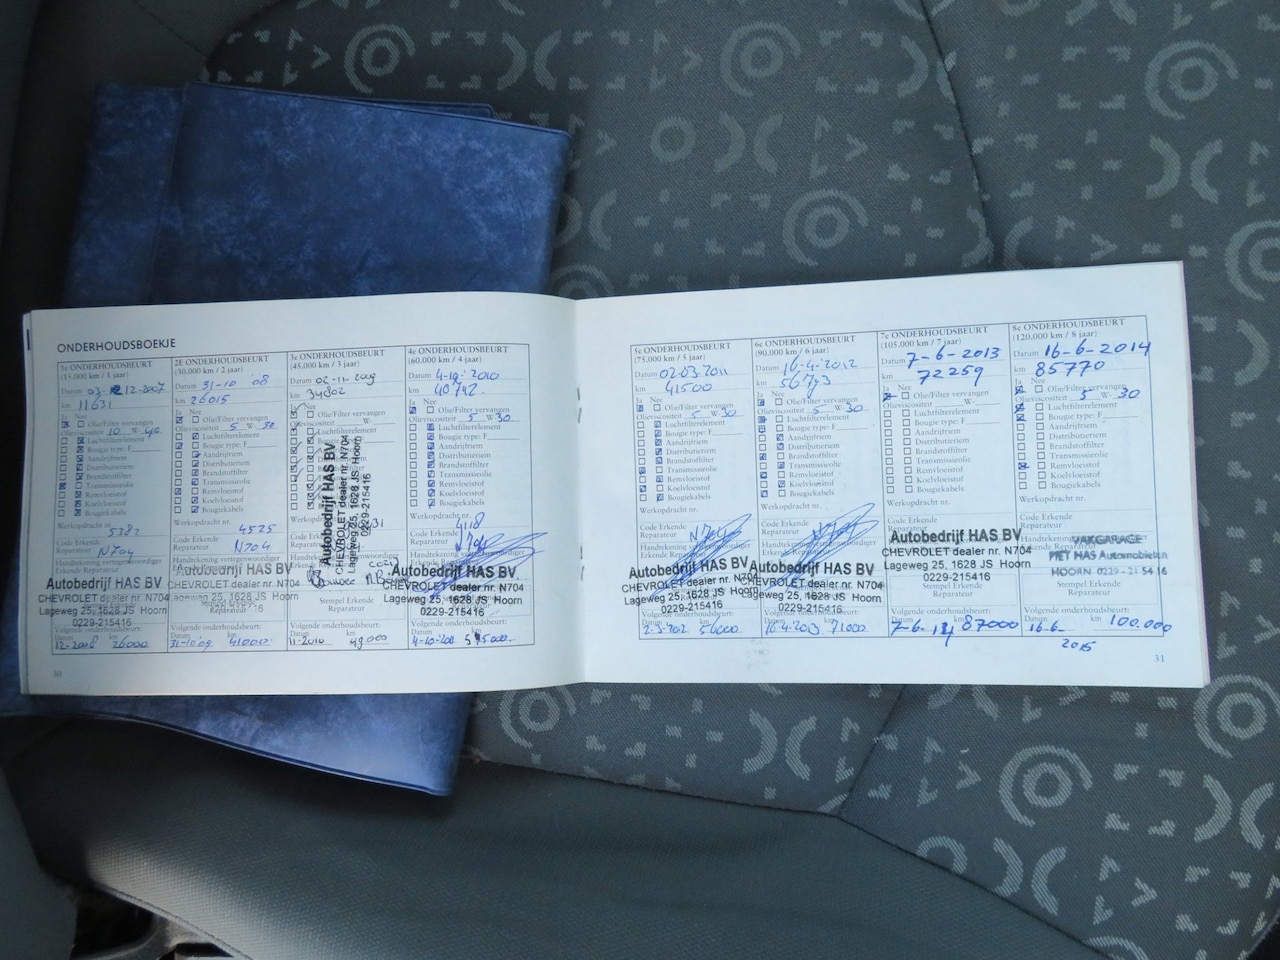 ONDERHOUDSBOEKJE
1e ONDERHOUDSBEURT
(15.000 km / 1 jaar)
Datum 03-12-2007
km 11631
Ja Nee
Olie/Filter vervangen
Olieviscositeit 10 W 40
Luchtfilterelement
Bougie type: F
Aandrijfriem
Distributieriem
Brandstoffilter
Transmissieolie
Remvloeistof
Koelvloeistof
Bougiekabels
Werkopdracht nr.
5382
Code Erkende
Reparateur N704
Autobedrijf HAS BV
CHEVROLET dealer nr. N704
Lageweg 25, 1628 JS Hoorn
0229-215416
Volgende onderhoudsbeurt:
Datum km
12-2008 26000
2E ONDERHOUDSBEURT
(30.000 km / 2 jaar)
Datum 31-10 '08
km 26015
Ja Nee
Olie/Filter vervangen
Olieviscositeit 5 W 30
Luchtfilterelement
Bougie type: F
Aandrijfriem
Distributieriem
Brandstoffilter
Transmissieolie
Remvloeistof
Koelvloeistof
Bougiekabels
Werkopdracht nr.
4525
Code Erkende
Reparateur N704
Autobedrijf HAS BV
CHEVROLET dealer nr. N704
Lageweg 25, 1628 JS Hoorn
Volgende onderhoudsbeurt:
Datum km
31-10-09 41000
3e ONDERHOUDSBEURT
(45.000 km / 3 jaar)
Datum 02-11-2009
km 34802
Ja Nee
Olie/Filter vervangen
Autobedrijf HAS BV
CHEVROLET dealer nr. N704
Lageweg 25, 1628 JS Hoorn
0229-215416
Stempel Erkende
Reparateur
Volgende onderhoudsbeurt:
Datum km
11-2010 49000
4e ONDERHOUDSBEURT
(60.000 km / 4 jaar)
Datum 4-10-2010
km 40742
Ja Nee
Olie/Filter vervangen
Olieviscositeit 5 W 30
Luchtfilterelement
Bougie type: F
Aandrijfriem
Distributieriem
Brandstoffilter
Transmissieolie
Remvloeistof
Koelvloeistof
Bougiekabels
Werkopdracht nr.
4118
Code Erkende
Reparateur N704
Autobedrijf HAS BV
CHEVROLET dealer nr. N704
Lageweg 25, 1628 JS Hoorn
0229-215416
Volgende onderhoudsbeurt:
Datum km
30
5e ONDERHOUDSBEURT
(75.000 km / 5 jaar)
Datum 02-03-2011
km 41500
Ja Nee
Olie/Filter vervangen
Olieviscositeit 5 W 30
Luchtfilterelement
Bougie type: F
Aandrijfriem
Distributieriem
Brandstoffilter
Transmissieolie
Remvloeistof
Koelvloeistof
Bougiekabels
Werkopdracht nr.
Code Erkende
Reparateur N704
Autobedrijf HAS BV
CHEVROLET dealer nr. N704
Lageweg 25, 1628 JS Hoorn
0229-215416
Volgende onderhoudsbeurt:
Datum km
56000
6e ONDERHOUDSBEURT
(90.000 km / 6 jaar)
Datum 16-4-2012
km 56743
Ja Nee
Olie/Filter vervangen
Olieviscositeit 5 W 30
Luchtfilterelement
Bougie type: F
Aandrijfriem
Distributieriem
Brandstoffilter
Transmissieolie
Remvloeistof
Koelvloeistof
Bougiekabels
Werkopdracht nr.
Code Erkende
Reparateur N704
Autobedrijf HAS BV
CHEVROLET dealer nr. N704
Lageweg 25, 1628 JS Hoorn
0229-215416
Volgende onderhoudsbeurt:
Datum km
16-4-2013 71000
7e ONDERHOUDSBEURT
(105.000 km / 7 jaar)
Datum 7-6-2013
km 72259
Ja Nee
Olie/Filter vervangen
Olieviscositeit W
Luchtfilterelement
Bougie type: F
Aandrijfriem
Distributieriem
Brandstoffilter
Transmissieolie
Remvloeistof
Koelvloeistof
Bougiekabels
Werkopdracht nr.
Code Erkende
Autobedrijf HAS BV
CHEVROLET dealer nr. N704
Lageweg 25, 1628 JS Hoorn
0229-215416
Stempel Erkende
Reparateur
Volgende onderhoudsbeurt:
Datum km
7-6-14 87000
8e ONDERHOUDSBEURT
(120.000 km / 8 jaar)
Datum 16-6-2014
km 85770
Ja Nee
Olie/Filter vervangen
Olieviscositeit 5 W 30
Luchtfilterelement
Bougie type: F
Aandrijfriem
Distributieriem
Brandstoffilter
Transmissieolie
Remvloeistof
Koelvloeistof
Bougiekabels
Werkopdracht nr.
Code Erkende
Reparateur
VAKGARAGE
PIET HAS Automobielen
HOORN 0229-21 54 16
Stempel Erkende
Reparateur
Volgende onderhoudsbeurt:
Datum km
16-6- 100.000
2015
31